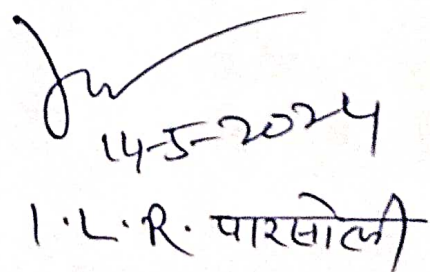 14-5-2024
I.L.R. पारसोली